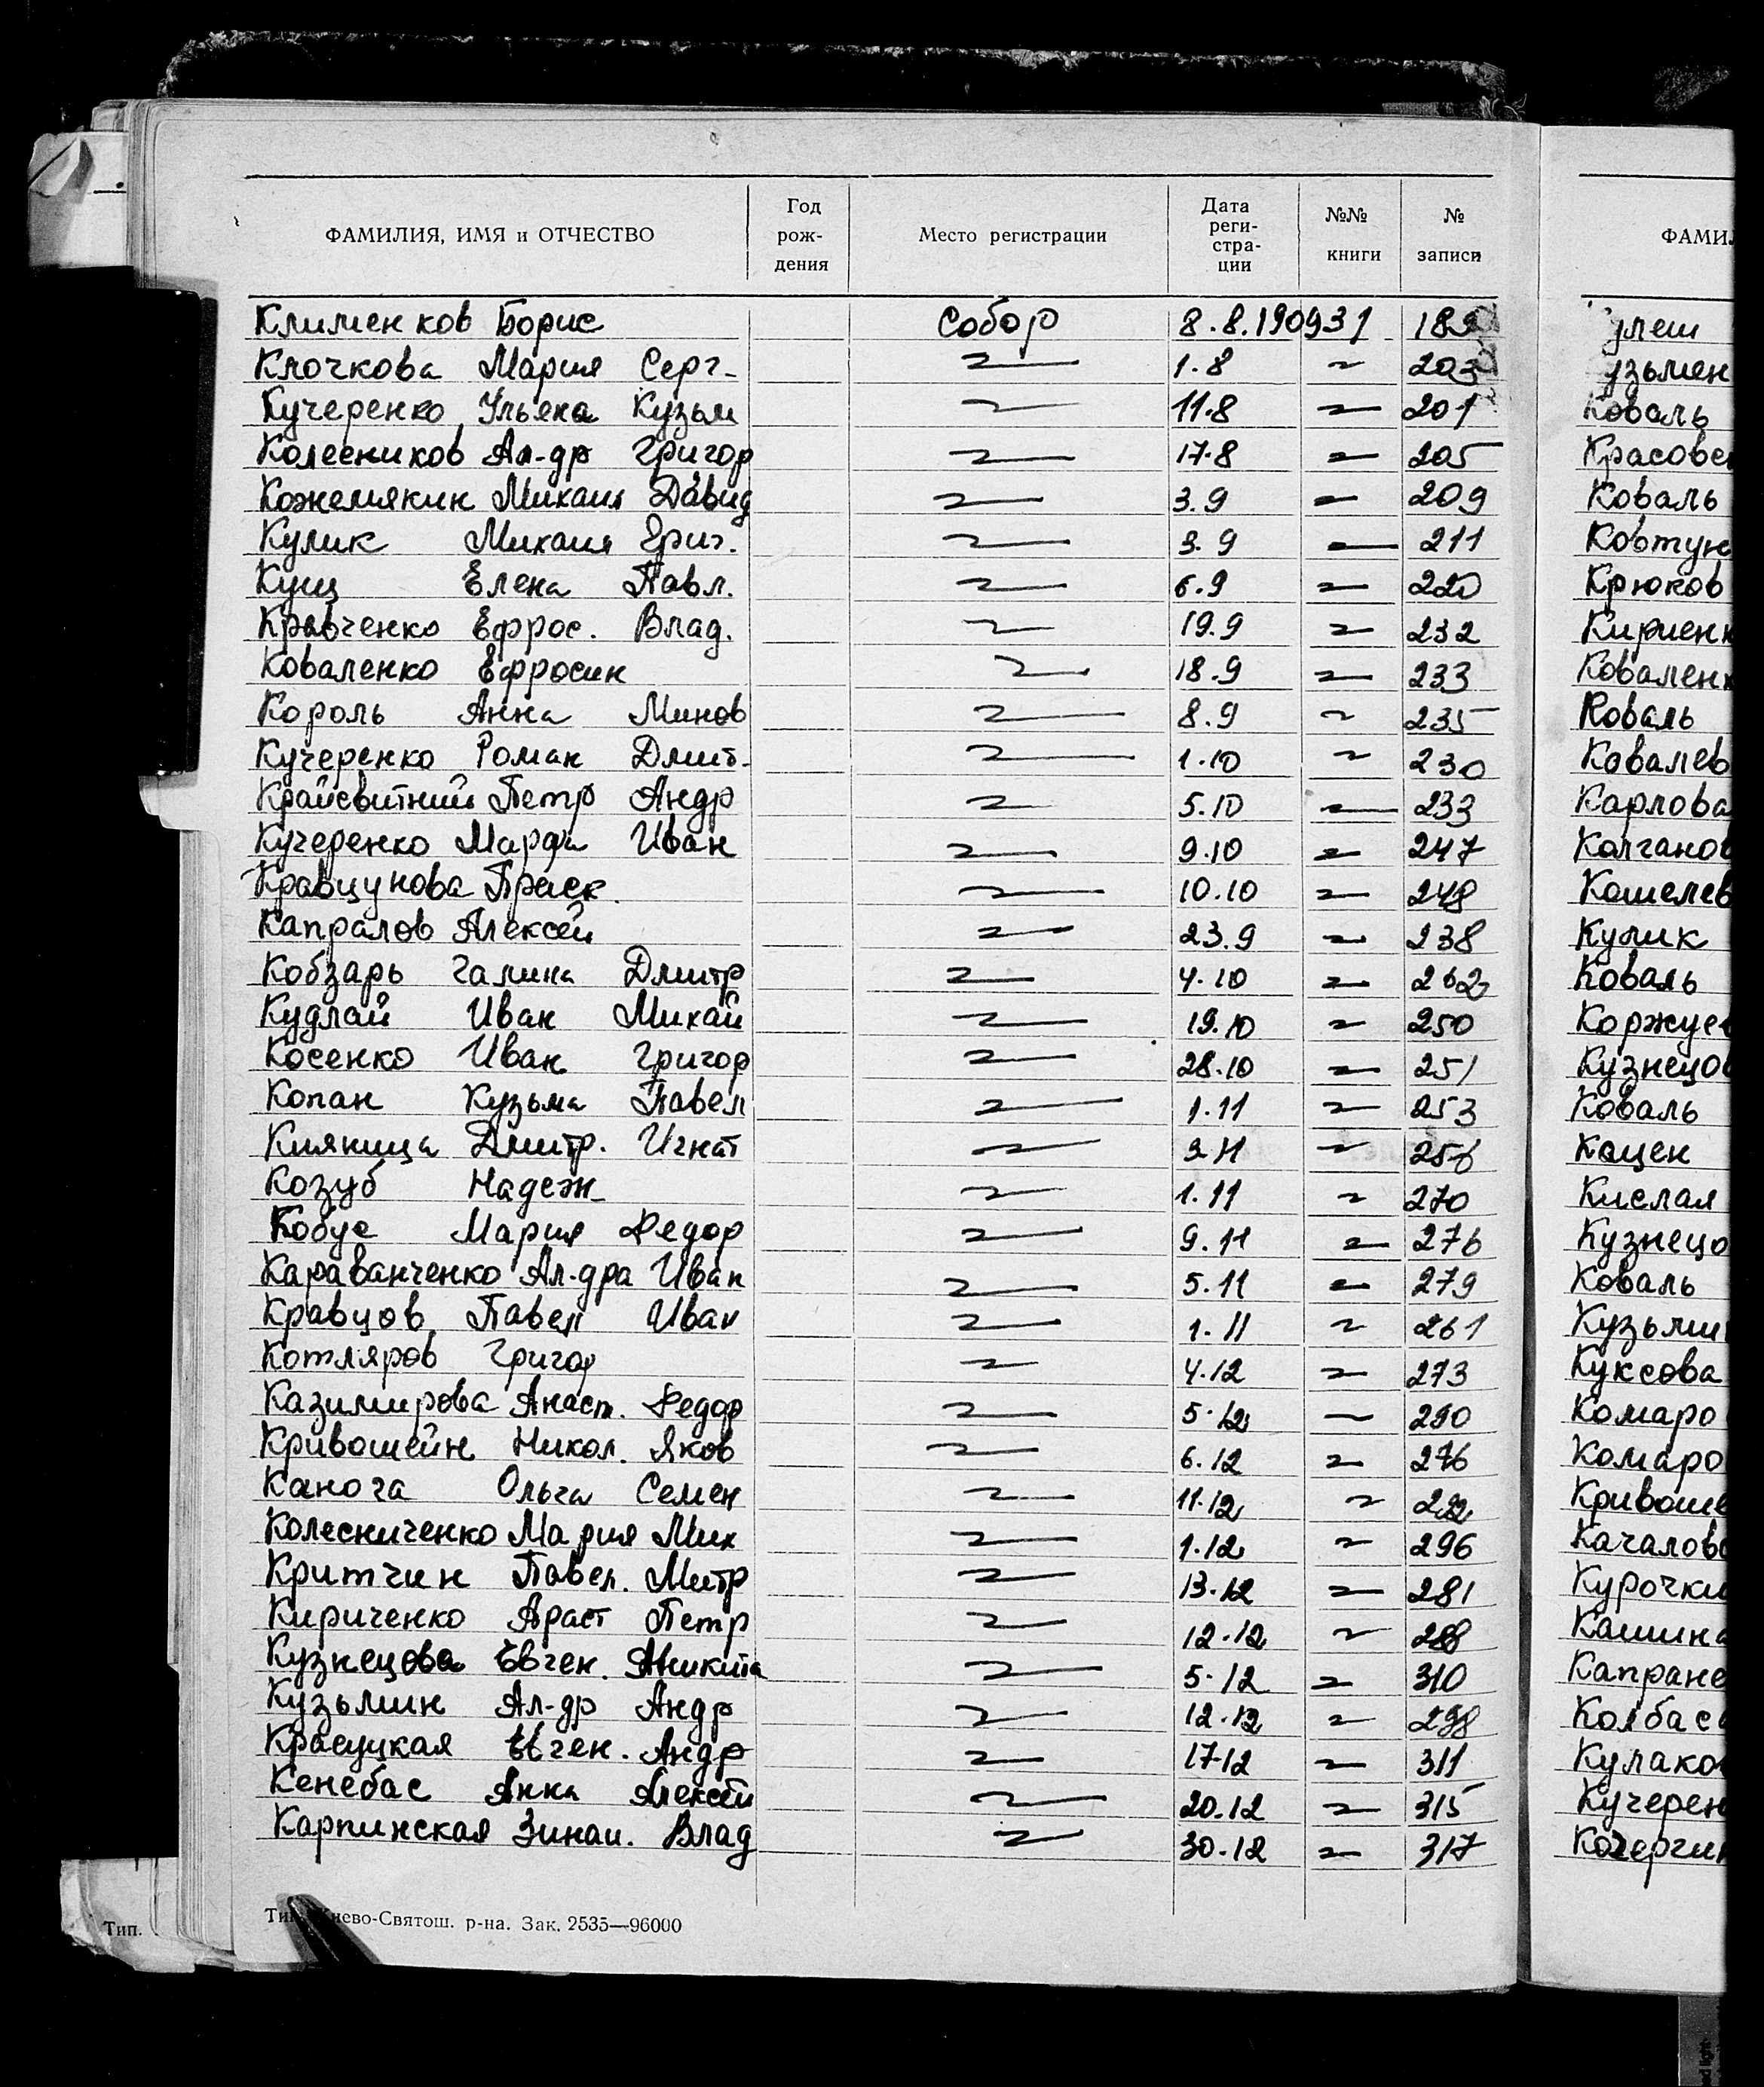 ФАМИЛИЯ, ИМЯ и ОТЧЕСТВО Год рож- дения Место регистрации Дата реги- стра- ции №№ книги № записи
Клименков Борис Собор 8.8.1909 31
Клочкова Мария Серг- 〃 1.8 〃 203
Кучеренко Ульяна Кузьм 〃 11.8 〃 201
Колесников Ал-др Григор 〃 17.8 〃 205
Кожемякин Михаил Давид 〃 3.9 〃 209
Кулик Михаил Григ. 〃 3.9 〃 211
Кущ Елена Павл. 〃 6.9 〃 220
Кравченко Ефрос. Влад. 〃 19.9 〃 232
Коваленко Ефросин 〃 18.9 〃 233
Король Анна Минов 〃 8.9 〃 235
Кучеренко Роман Дмит- 〃 1.10 〃 230
Крайсвитний Петр Андр 〃 5.10 〃 233
Кучеренко Марфа Иван 〃 9.10 〃 247
Кравцунова Праск. 〃 10.10 〃 248
Капралов Алексей 〃 23.9 〃 238
Кобзарь Галина Дмитр 〃 4.10 〃 262
Кудлай Иван Михай 〃 19.10 〃 250
Косенко Иван Григор 〃 28.10 〃 251
Копан Кузьма Павел 〃 1.11 〃 253
Кияница Дмитр. Игнат 〃 3 11 〃 256
Козуб Надеж- 〃 1.11 〃 270
Кобус Мария Федор 〃 9.11 〃 276
Караванченко Ал-дра Иван 〃 5.11 〃 279
Кравцов Павел Иван 〃 1.11 〃 261
Котляров Григор 〃 4.12 〃 273
Казимирова Анаст. Федор 〃 5.12 〃 290
Кривошейн Никол. Яков 〃 6.12 〃 276
Каноча Ольга Семен 〃 11.12 〃
Колесниченко Мария Мих 〃 1.12 〃 296
Критчин Павел. Митр 〃 13.12 〃 281
Кириченко Араст Петр 〃 12.12 〃 288
Кузнецова Евген. Аникита 〃 5.12 〃 310
Кузьмин Ал-др Андр 〃 12.12 〃 298
Красуцкая Евген. Андр 〃 17 12 〃 311
Кенебас Анна Алексей 〃 20.12 〃 315
Карпинская Зинаи. Влад 〃 30.12 〃 317
Киево-Святош. р-на. Зак. 2535—96000
Тип.
ФАМИЛ
улеш
узьмен
Коваль
Красовс
Коваль
Ковтун
Крюков
Кириенк
Коваленк
Коваль
Ковалев
Карлова
Колганов
Кошелев
Кулик
Коваль
Коржуе
Кузнецов
Коваль
Коцен
Кислая
Кузнецо
Коваль
Кузьмин
Куксова
Комаро
Комаро
Кривоше
Качалов
Курочки
Кашина
Капране
Колбас
Кулако
Кучерен
Кочергин